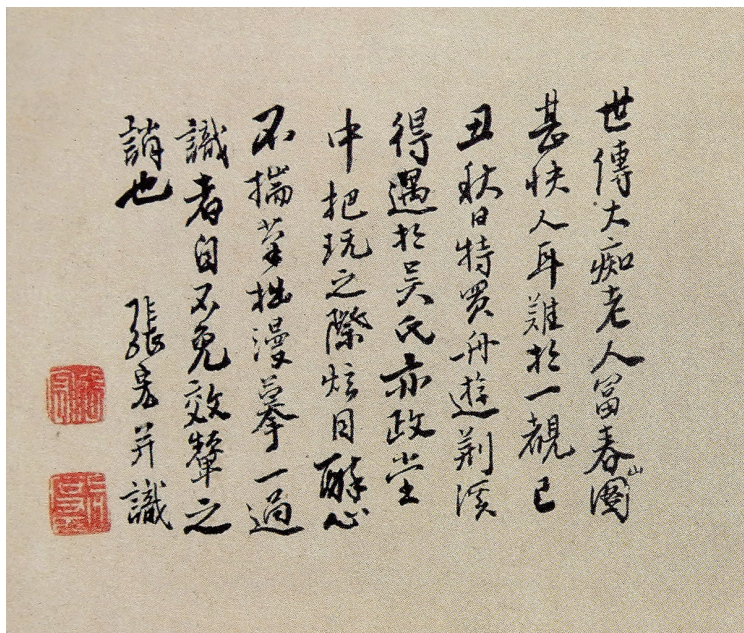 世傳大痴老人富春山圖
甚快人耳難於一覩己
丑秋日特買舟遊荆溪
得遇於吳氏亦政堂
中把玩之際炫目醉心
不揣菲拙漫摹一過
識者自不免效顰之
誚也 張宏并識